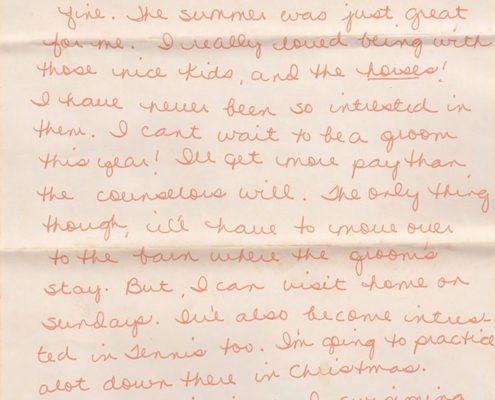 fine. The summer was just great
for me. I really loved being with
those nice kids, and the horses!
I have never been so intrested in
them. I cant wait to be a groom
this year! I'll get more pay than
the counselors will. The only thing
though, i'll have to move over
to the barn where the grooms
stay. But, I can visit home on
sundays. I've also become intres-
ted in Tennis too. I'm going to practice
alot down there in Christmas.